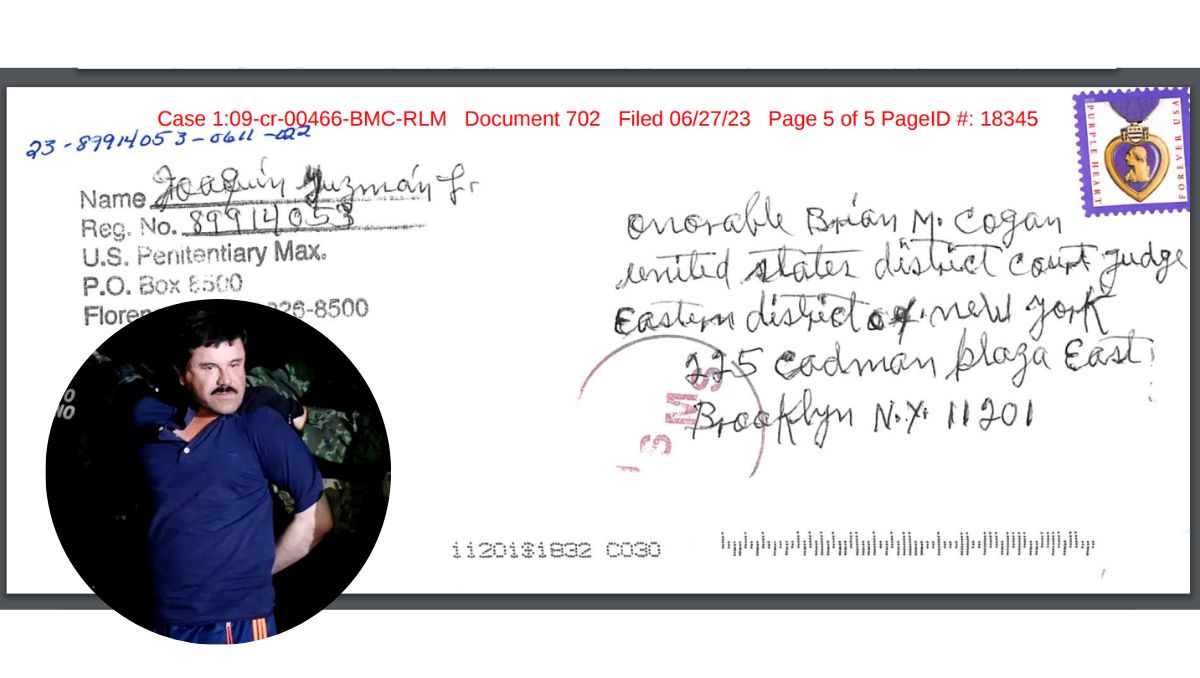 Case 1:09-cr-00466-BMC-RLM Document 702 Filed 06/27/23 Page 5 of 5 PageID #: 18345
23-87914053-0611-022
Name Joaquín Guzmán Lr
Reg. No. 89914053
U.S. Penitentiary Max.
P.O. Box 8500
Floren 26-8500
PURPLE HEART
FOREVER USA
onorable Brian M. Cogan
united states district court judge
Eastern district of new york
225 cadman plaza East
Brooklyn N.Y. 11201
11201$1832 C030